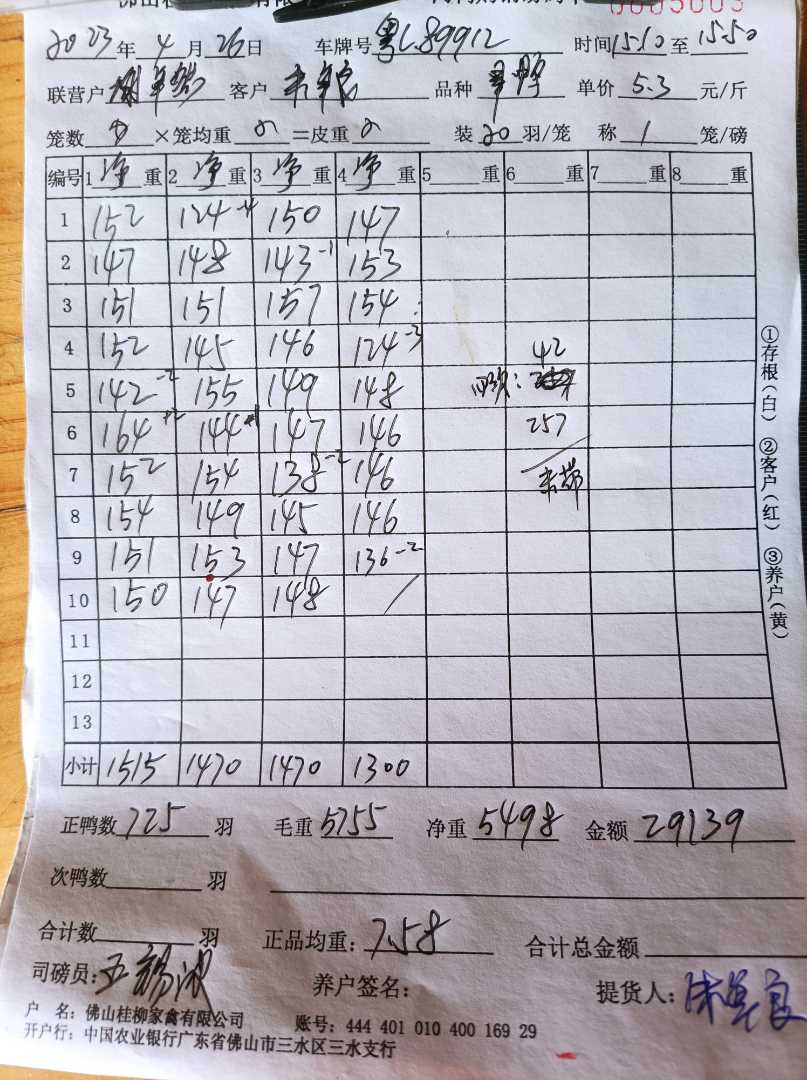 0005003
2023年 4月 26日 车牌号 粤L89912 时间 15.10 至 15.50
联营户 客户 品种 单价 5.3 元/斤
笼数 ×笼均重 =皮重 装 20 羽/笼 称 1 笼/磅
编号 1 净 重 2 净 重 3 净 重 4 净 重 5 重 6 重 7 重 8 重
1 152 124-4 150 147
2 147 148 143-1 153
3 151 151 157 154
4 152 145 146 124-3 42
5 142-2 155 149 148
6 164+2 144 147 146 257
7 152 154 138-2 146
8 154 149 145 146
9 151 153 147 136-2
10 150 147 148 /
11
12
13
小计 1515 1470 1470 1300
①存根(白) ②客户(红) ③养户(黄)
正鸭数 725 羽 毛重 5755 净重 5498 金额 29139
次鸭数 羽
合计数 羽 正品均重: 7.58 合计总金额
司磅员: 养户签名: 提货人:
户 名: 佛山桂柳家禽有限公司 账号: 444 401 010 400 169 29
开户行: 中国农业银行广东省佛山市三水区三水支行